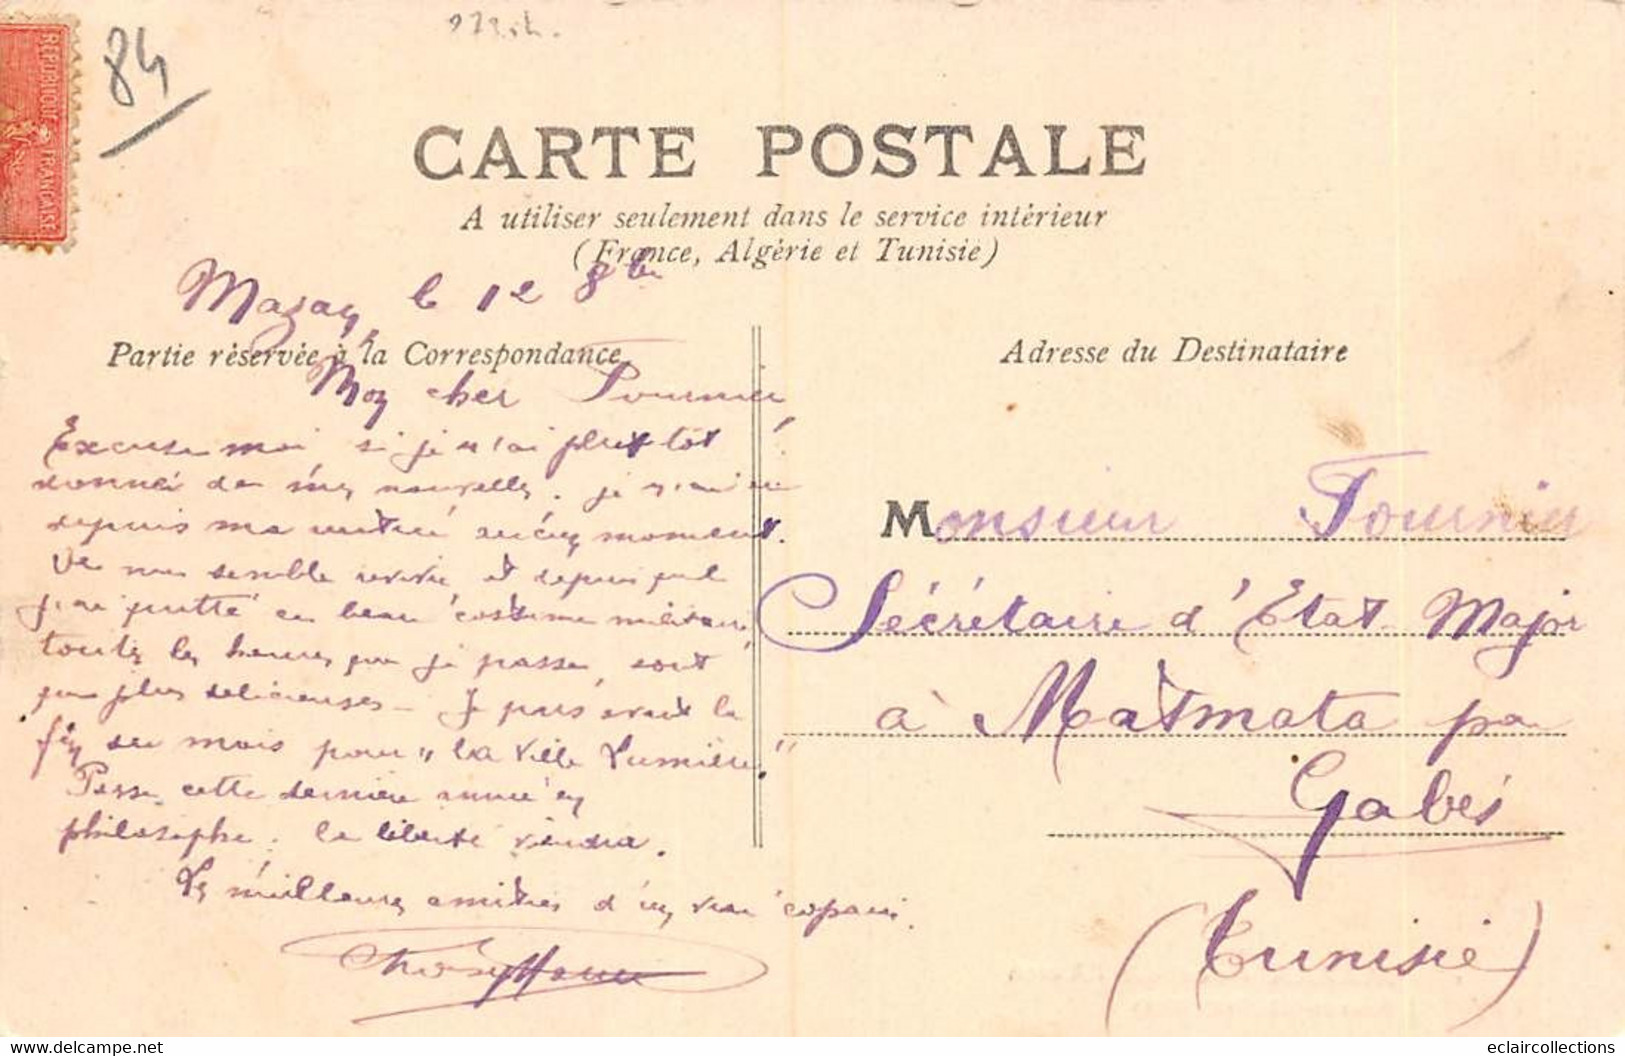 84
RÉPUBLIQUE FRANÇAISE
CARTE POSTALE
A utiliser seulement dans le service intérieur
(France, Algérie et Tunisie)
Mazan, le 12 8bre
Partie réservée à la Correspondance
Adresse du Destinataire
Mon cher Fournier,
Excuse moi si je n'ai plus tôt
donné de mes nouvelles. Je n'ai eu
depuis ma rentrée aucun moment.
me semble revivre et depuis que
j'ai quitté ce beau costume militaire
toutes les heures que je passe, sont
que plus délicieuses - Je pars avant la
fin du mois pour "La Ville Lumière"
Passe cette dernière année en
philosophe. La liberté viendra.
Les meilleures amitiés d'un vrai copain.
Monsieur Fournier
Sécrétaire d'Etat Major
à Matmata par
Gabès
(Tunisie)
eclaircollections
www.delcampe.net